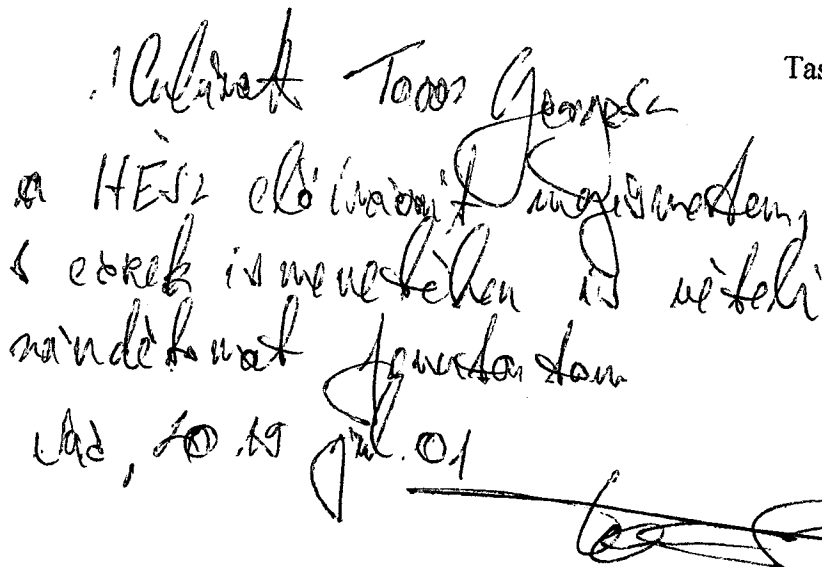 Tas
Alulírott Toó György
a HÉSZ előírásait megismertem,
s ezek ismeretében is vételi
szándékomat fenntartom
2019 júl. 01